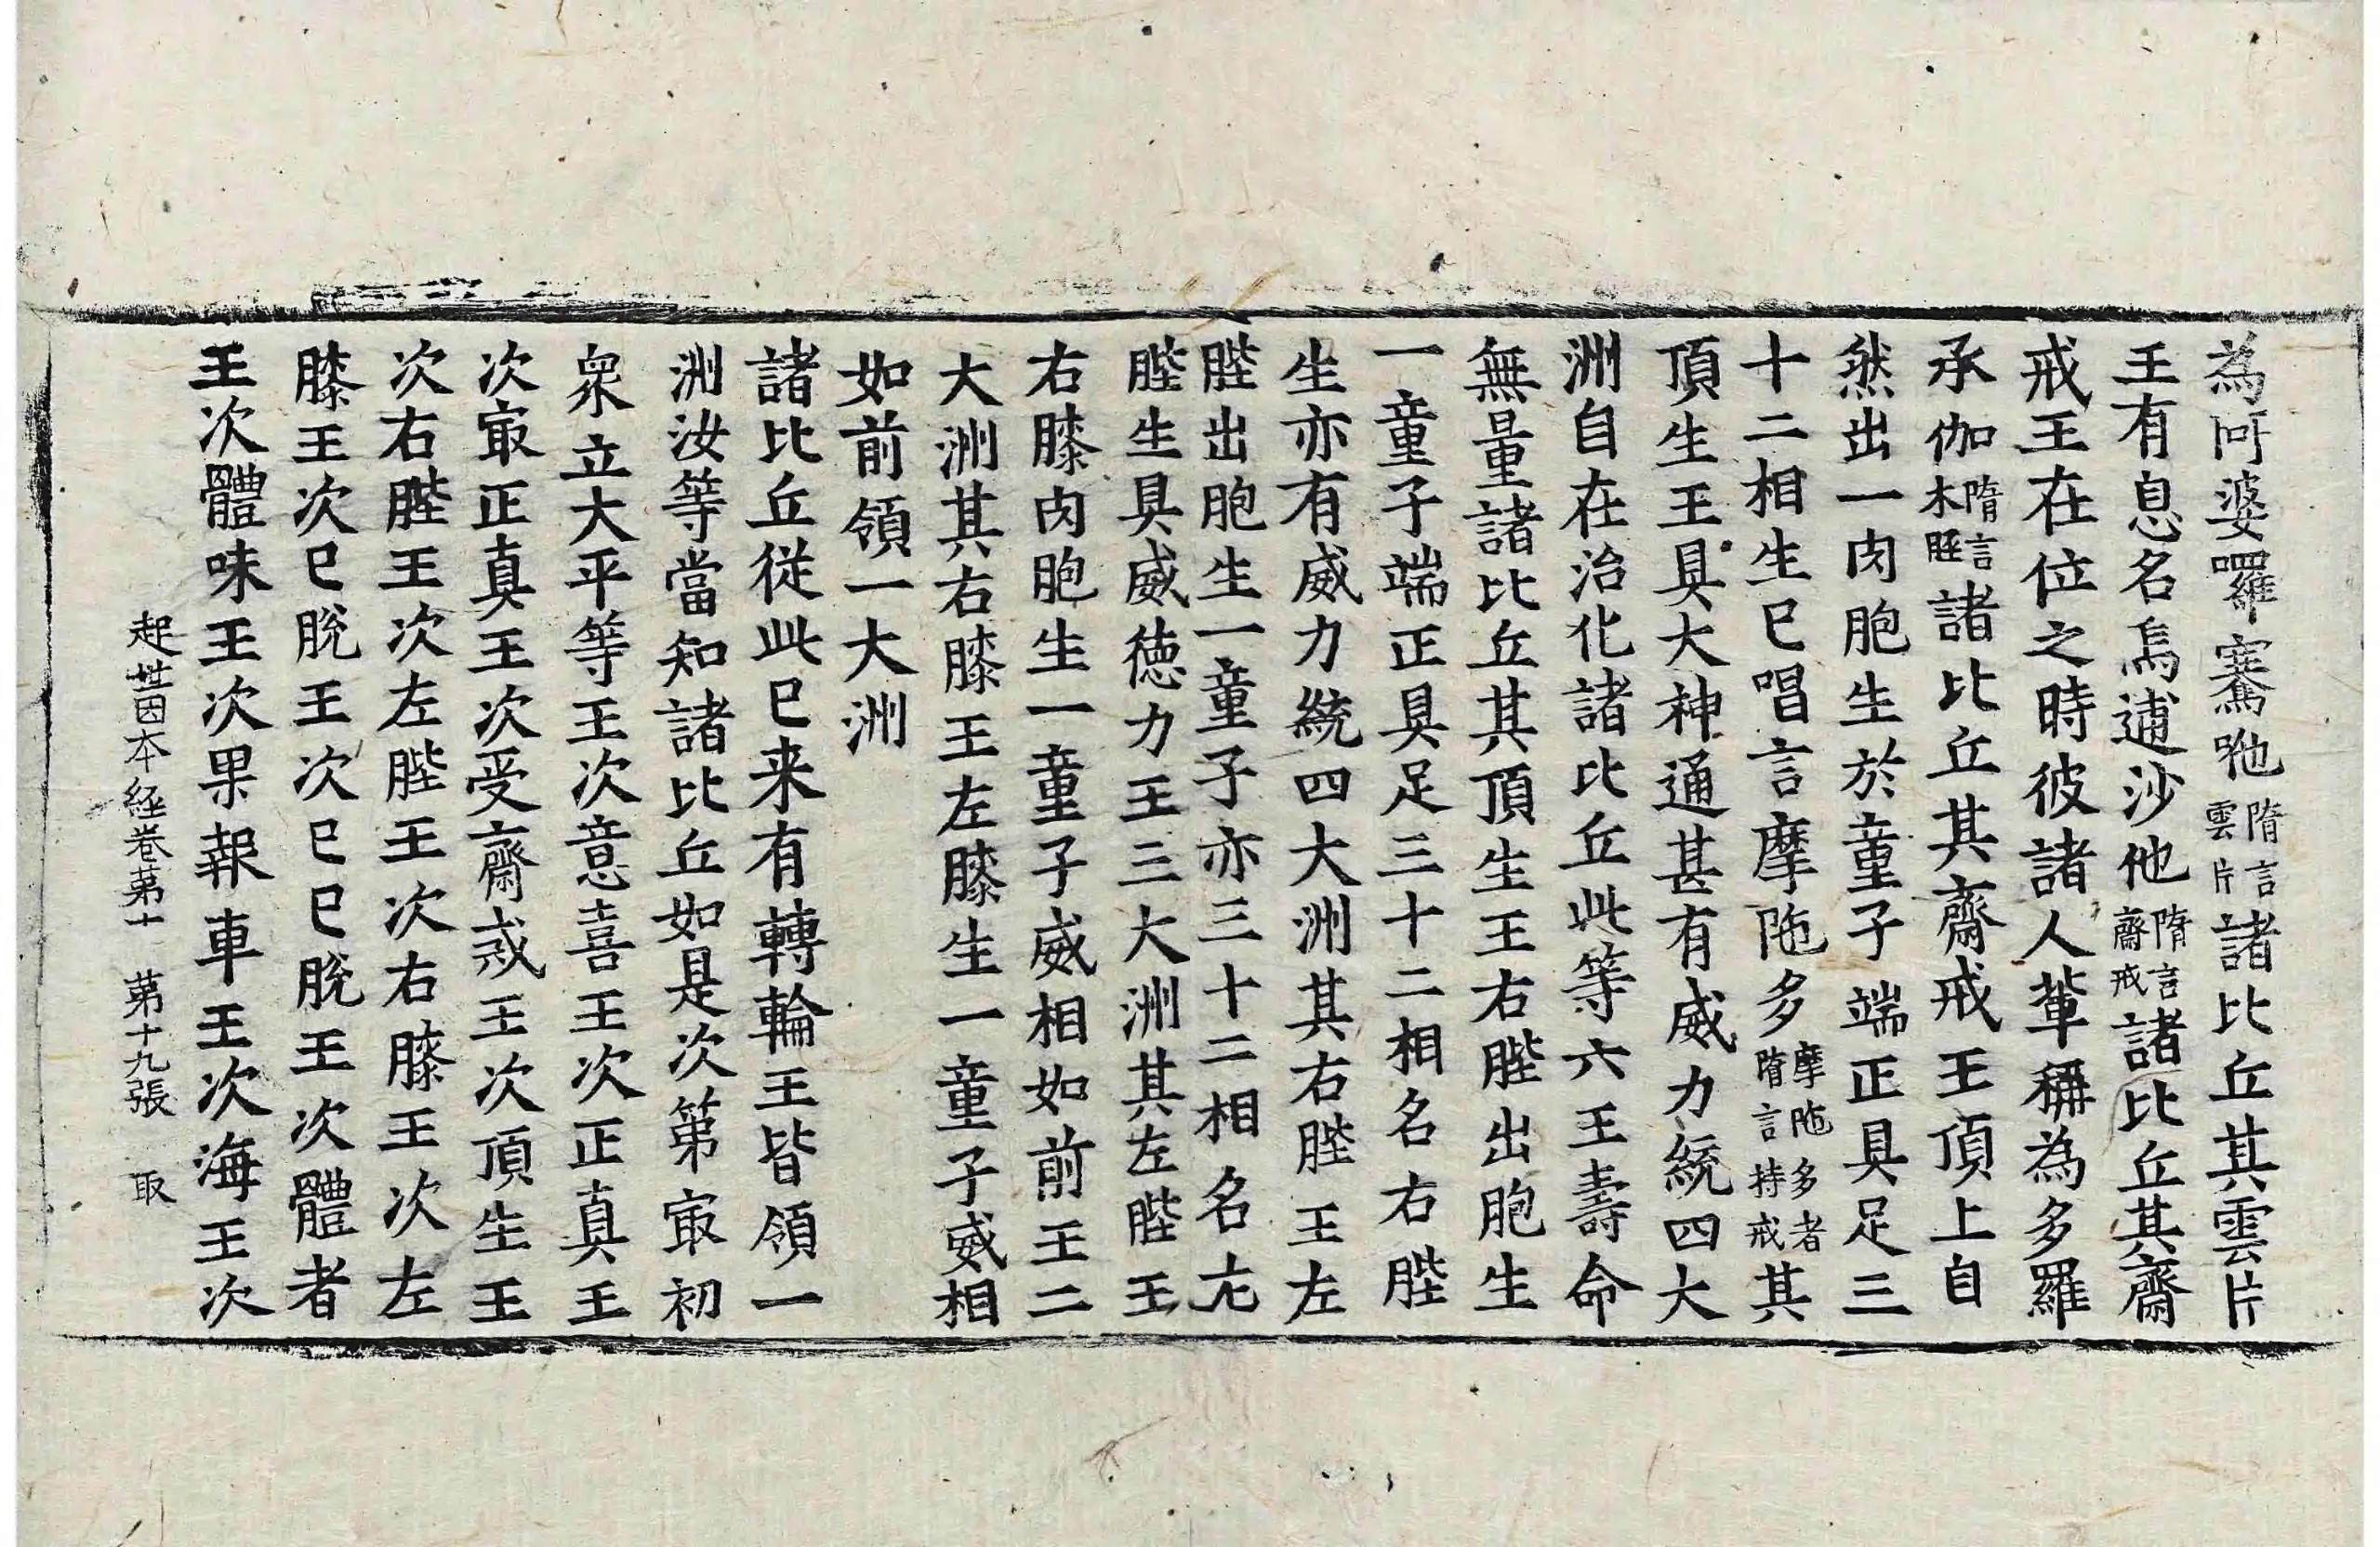 為阿婆囉騫咃隋言雲片諸比丘其雲片
王有息名烏逋沙他隋言齋戒諸比丘其齋
戒王在位之時彼諸人輩稱為多羅
承伽隋言木脛諸比丘其齋戒王頂上自
然出一肉胞生於童子端正具足三
十二相生已唱言摩陁多摩陁多者隋言持戒其
頂生王具大神通甚有威力統四大
洲自在治化諸比丘此等六王壽命
無量諸比丘其頂生王右髀出胞生
一童子端正具足三十二相名右髀
生亦有威力統四大洲其右髀王左
髀出胞生一童子亦三十二相名左
髀生具威德力王三大洲其左髀王
右膝肉胞生一童子威相如前王二
大洲其右膝王左膝生一童子威相
如前領一大洲
諸比丘從此已来有轉輪王皆領一
洲汝等當知諸比丘如是次第㝡初
衆立大平等王次意喜王次正真王
次㝡正真王次受齋戒王次頂生王
次右髀王次左髀王次右膝王次左
膝王次已脫王次已已脫王次體者
王次體味王次果報車王次海王次
起世因本經卷第十 第十九張 取